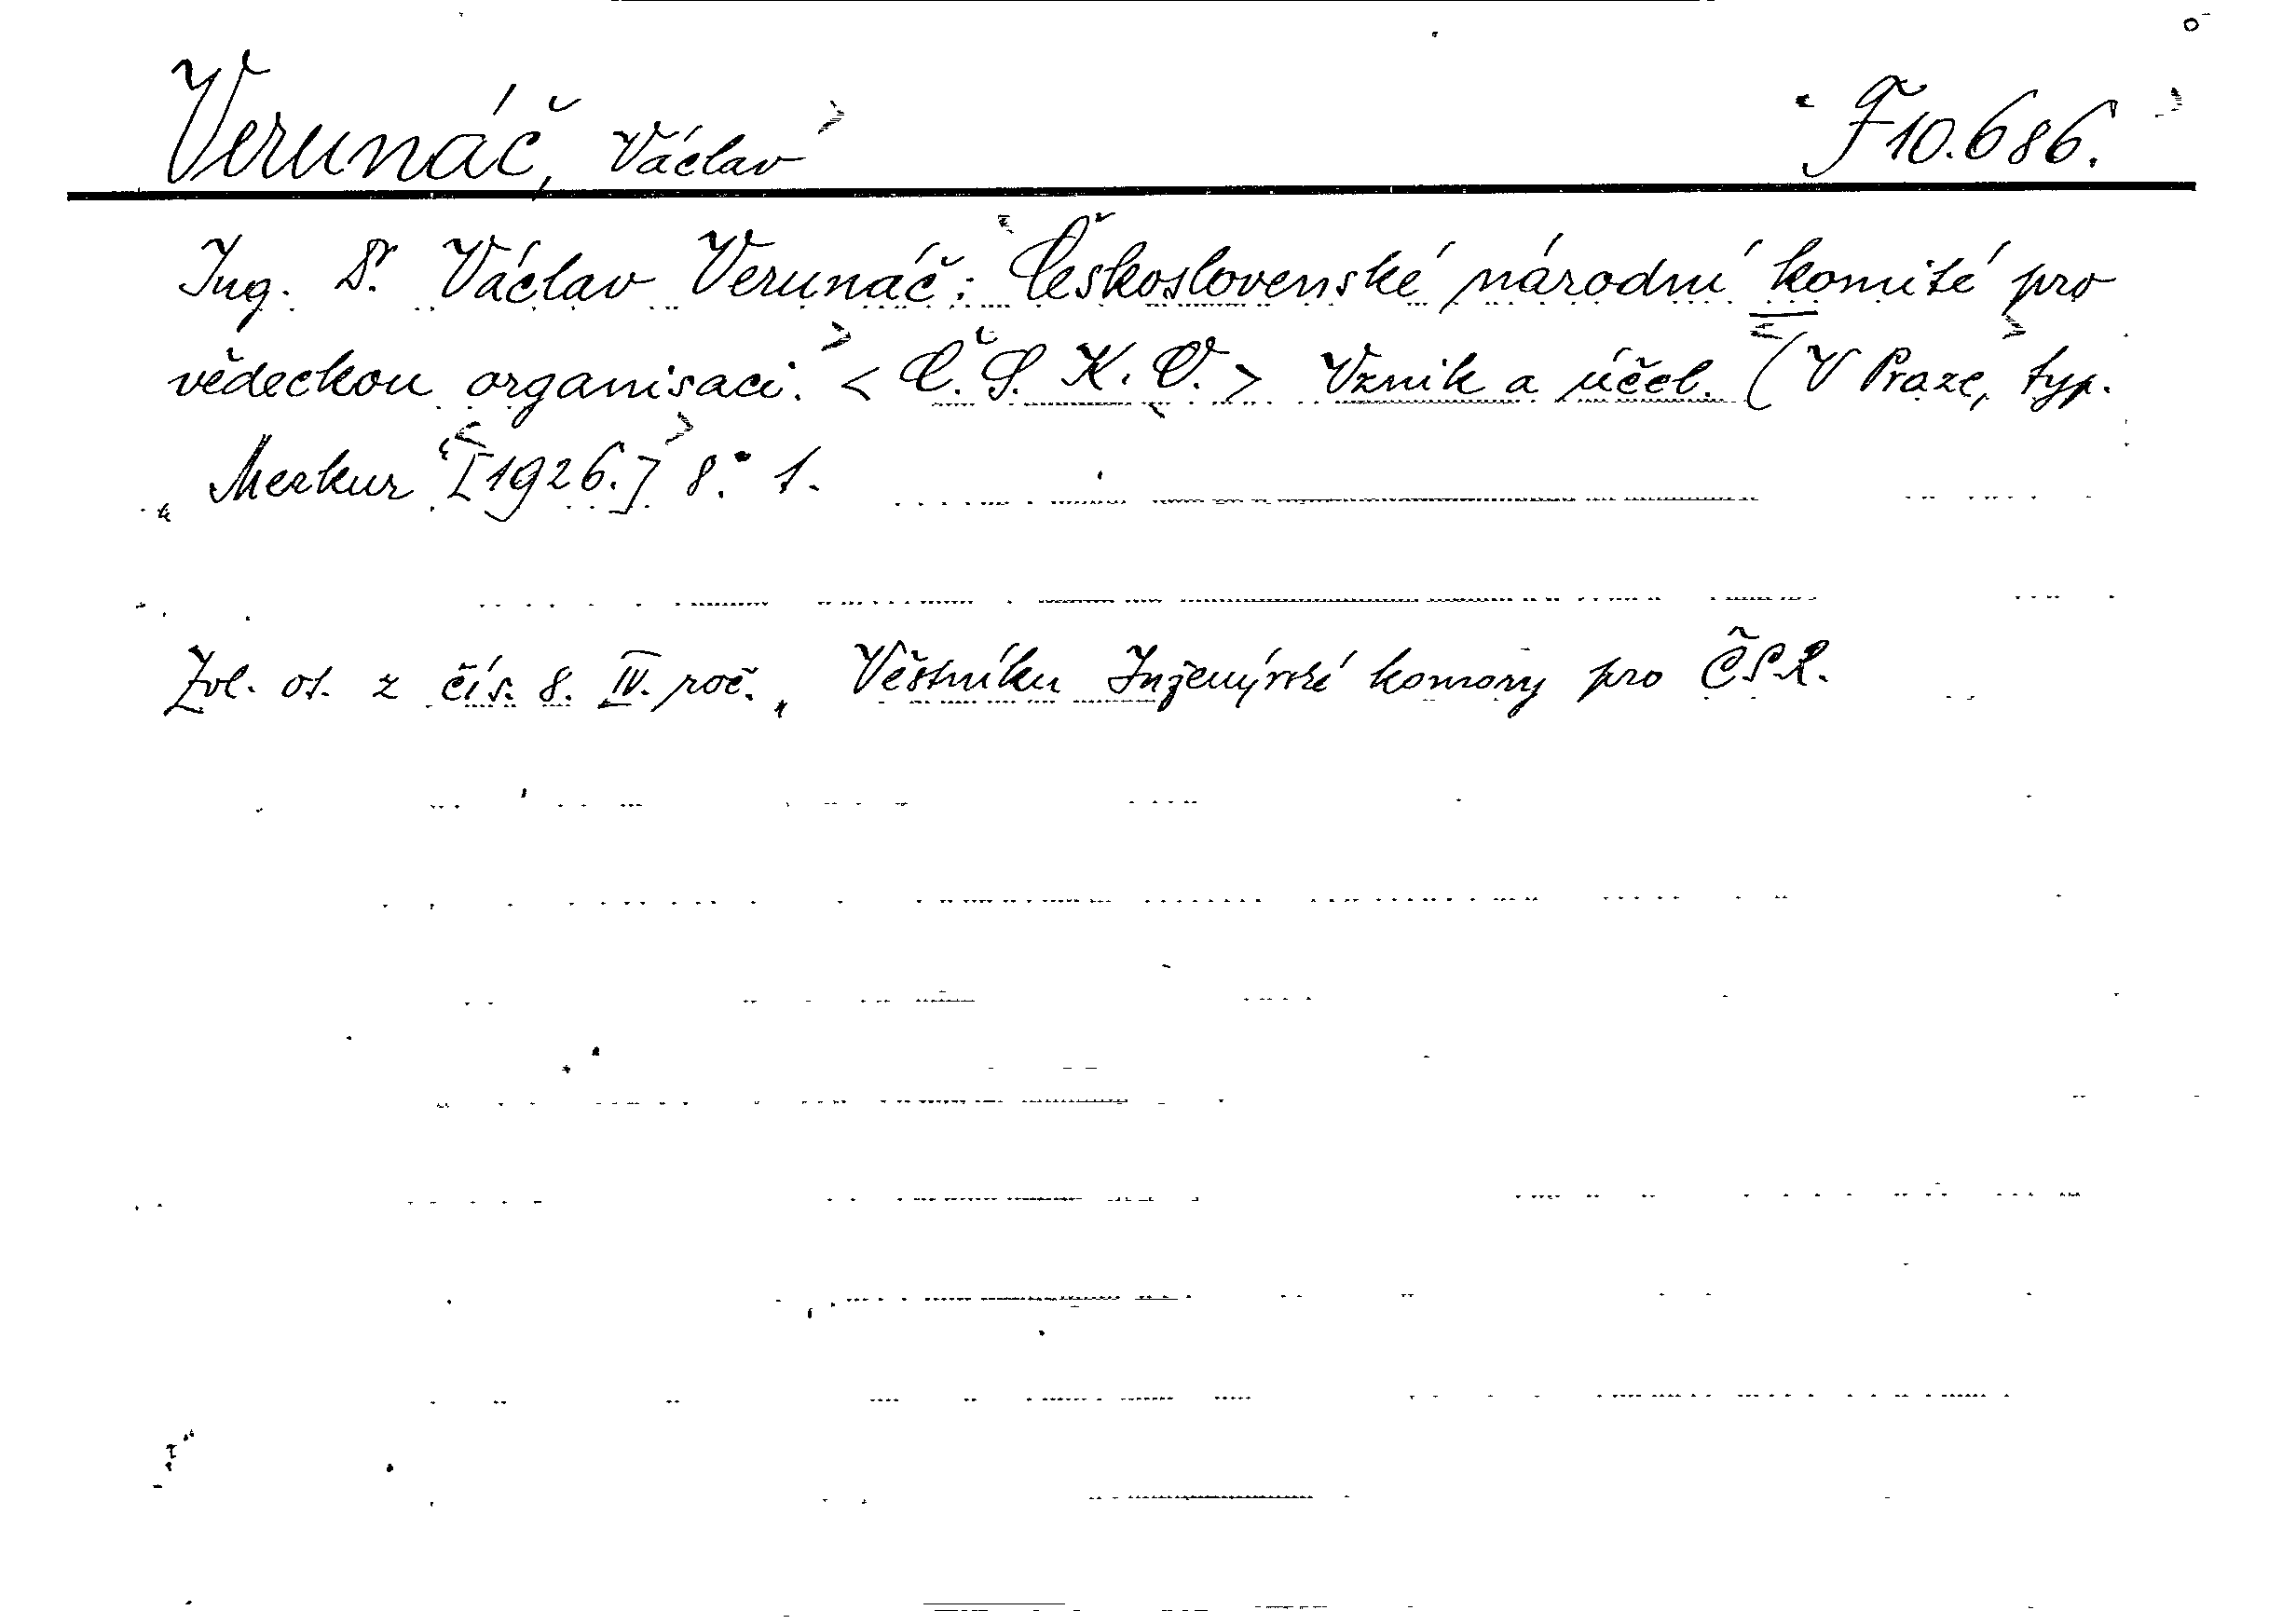 Verunáč, Václav F 10.686.
Ing. Dr. Václav Verunáč: Československé národní komité pro
vědeckou organisaci. < Č. S. K. O. > Vznik a účel. (V Praze, typ.
Merkur [1926.] 8.° 1.
Zvl. ot. z čís. 8. IV. roč. „Věstníku Inženýrské komory pro ČSR.